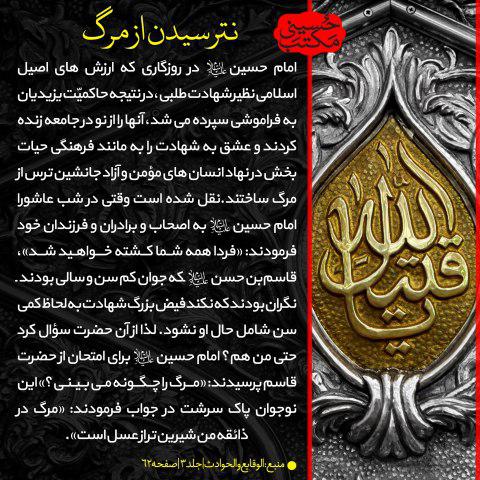 نترسیدن از مرگ
مکتب حسینی
امام حسین علیه‌السلام در روزگاری که ارزش های اصیل
اسلامی نظیر شهادت طلبی، در نتیجه حاکمیّت یزیدیان
به فراموشی سپرده می شد، آنها را از نو در جامعه زنده
کردند و عشق به شهادت را به مانند فرهنگی حیات
بخش در نهاد انسان های مؤمن و آزاد جانشین ترس از
مرگ ساختند. نقل شده است وقتی در شب عاشورا
امام حسین علیه‌السلام به اصحاب و برادران و فرزندان خود
فرمودند: «فردا همه شما کشته خواهید شد»،
قاسم بن حسن علیه‌السلام که جوان کم سن و سالی بودند.
نگران بودند که نکند فیض بزرگ شهادت به لحاظ کمی
سن شامل حال او نشود. لذا از آن حضرت سؤال کرد
حتی من هم؟ امام حسین علیه‌السلام برای امتحان از حضرت
قاسم پرسیدند: «مرگ را چگونه می بینی؟» این
نوجوان پاک سرشت در جواب فرمودند: «مرگ در
ذائقه من شیرین تر از عسل است».
منبع: الوقایع والحوادث | جلد ۳ | صفحه ۶۲
یا قتیل الله